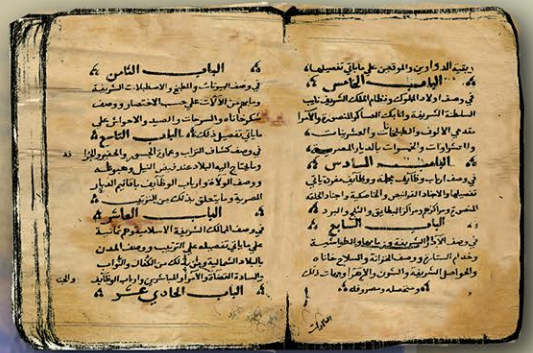 وبقية الدواوين والموقعين على ما ياتي تفصيلها
الباب الخامس
في وصف اولاد الملوك ونظام الملك الشريف نايب
السلطنة الشريفة واتابك العساكر المنصورة والامرا
مقدمي الالوف والطبلخانات والعشرينات
والعشراوات والخمسات بالديار المصرية
الباب السادس
في وصف ارباب وظايف جملة ووظايف مفردة ياتي
تفصيلها والاجناد القرانيص والخاصكية واجناد الحلقة
المنصورة ومراكزهم ومراكز البطايق والثلج والبرد
الباب السابع
في وصف الادر الشريفة وزمامها والطواشية
وخدام الستارة ووصف الخزانة والسلاح خاناه
والحواصل الشريفة والشون والاهرا وجهات ذلك
ومتحصله ومصروفه
الباب الثامن
في وصف البيوتات والمطبخ والاصطبلات الشريفة
وما بهم من الآلات على حسب الاختصار ووصف
شكرخاناه والسرحات والصيد والاحواش على
ما ياتي تفصيل ذلك الباب التاسع
في وصف كشاف التراب وعمارة الجسور والحفير والجرا
وما يحتاج اليه البلاد عند قبض النيل وهبوطه
ووصف الولاة وارباب الوظايف باقاليم الديار
المصرية وما يتعلق بذلك من الترتيب
الباب العاشر
في وصف الممالك الشريفة الاسلامية وهم ثمانية
على ما ياتي تفصيله على الترتيب ووصف المدن
بالبلاد الشمالية وبيان ذلك من الكفال والنواب
والسادة القضاة والامرا والمباشرين وارباب الوظايف
الباب الحادي عشر